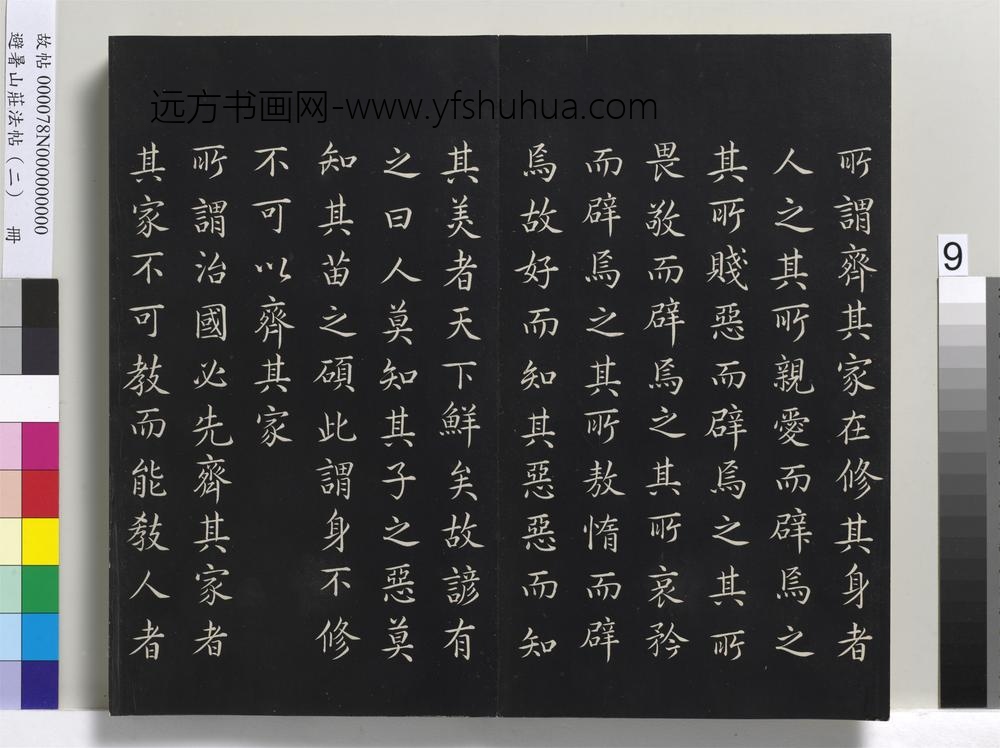 所謂齊其家在修其身者
人之其所親愛而辟焉之
其所賤惡而辟焉之其所
畏敬而辟焉之其所哀矜
而辟焉之其所敖惰而辟
焉故好而知其惡惡而知
其美者天下鮮矣故諺有
之曰人莫知其子之惡莫
知其苗之碩此謂身不修
不可以齊其家
所謂治國必先齊其家者
其家不可教而能教人者
远方书画网-www.yfshuhua.com
故帖 000078N000000000
避暑山莊法帖（二） 冊
9